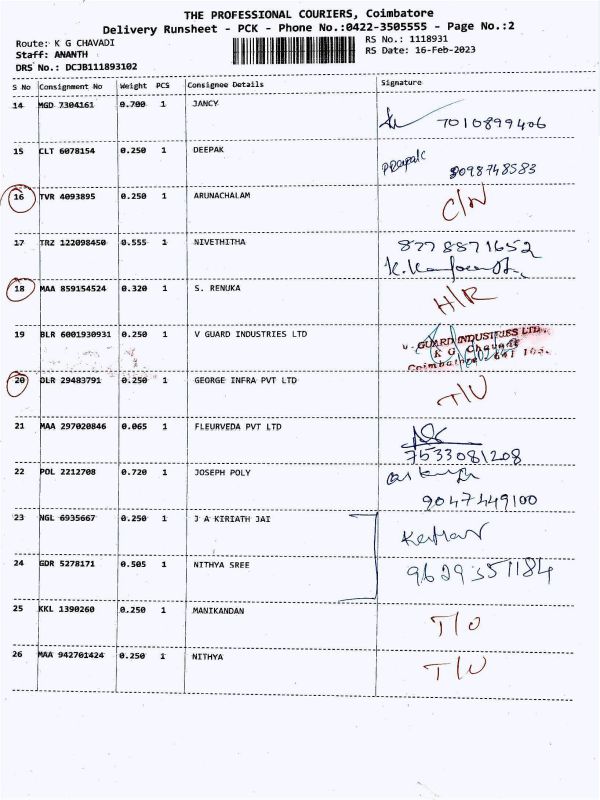 THE PROFESSIONAL COURIERS, Coimbatore
Delivery Runsheet - PCK - Phone No.:0422-3505555 - Page No.:2
Route: K G CHAVADI
RS No.: 1118931
Staff: ANANTH
RS Date: 16-Feb-2023
DRS No.: DCJB111893102
S No Consignment No Weight PCS Consignee Details Signature
14 MGD 7304161 0.700 1 JANCY
7010899406
15 CLT 6078154 0.250 1 DEEPAK
9098748583
16 TVR 4093895 0.250 1 ARUNACHALAM C/N
17 TRZ 122098450 0.555 1 NIVETHITHA 8778871652
18 MAA 859154524 0.320 1 S. RENUKA H/R
19 BLR 6001930931 0.250 1 V GUARD INDUSTRIES LTD V-GUARD INDUSTRIES LTD.
K G Chavadi
Coimbatore 641 105.
20 DLR 29483791 0.250 1 GEORGE INFRA PVT LTD T/U
21 MAA 297020846 0.065 1 FLEURVEDA PVT LTD
7533081208
22 POL 2212708 0.720 1 JOSEPH POLY
9047449100
23 NGL 6935667 0.250 1 J A KIRIATH JAI
24 GDR 5278171 0.505 1 NITHYA SREE 9629351184
25 KKL 1390260 0.250 1 MANIKANDAN T/O
26 MAA 942701424 0.250 1 NITHYA T/U